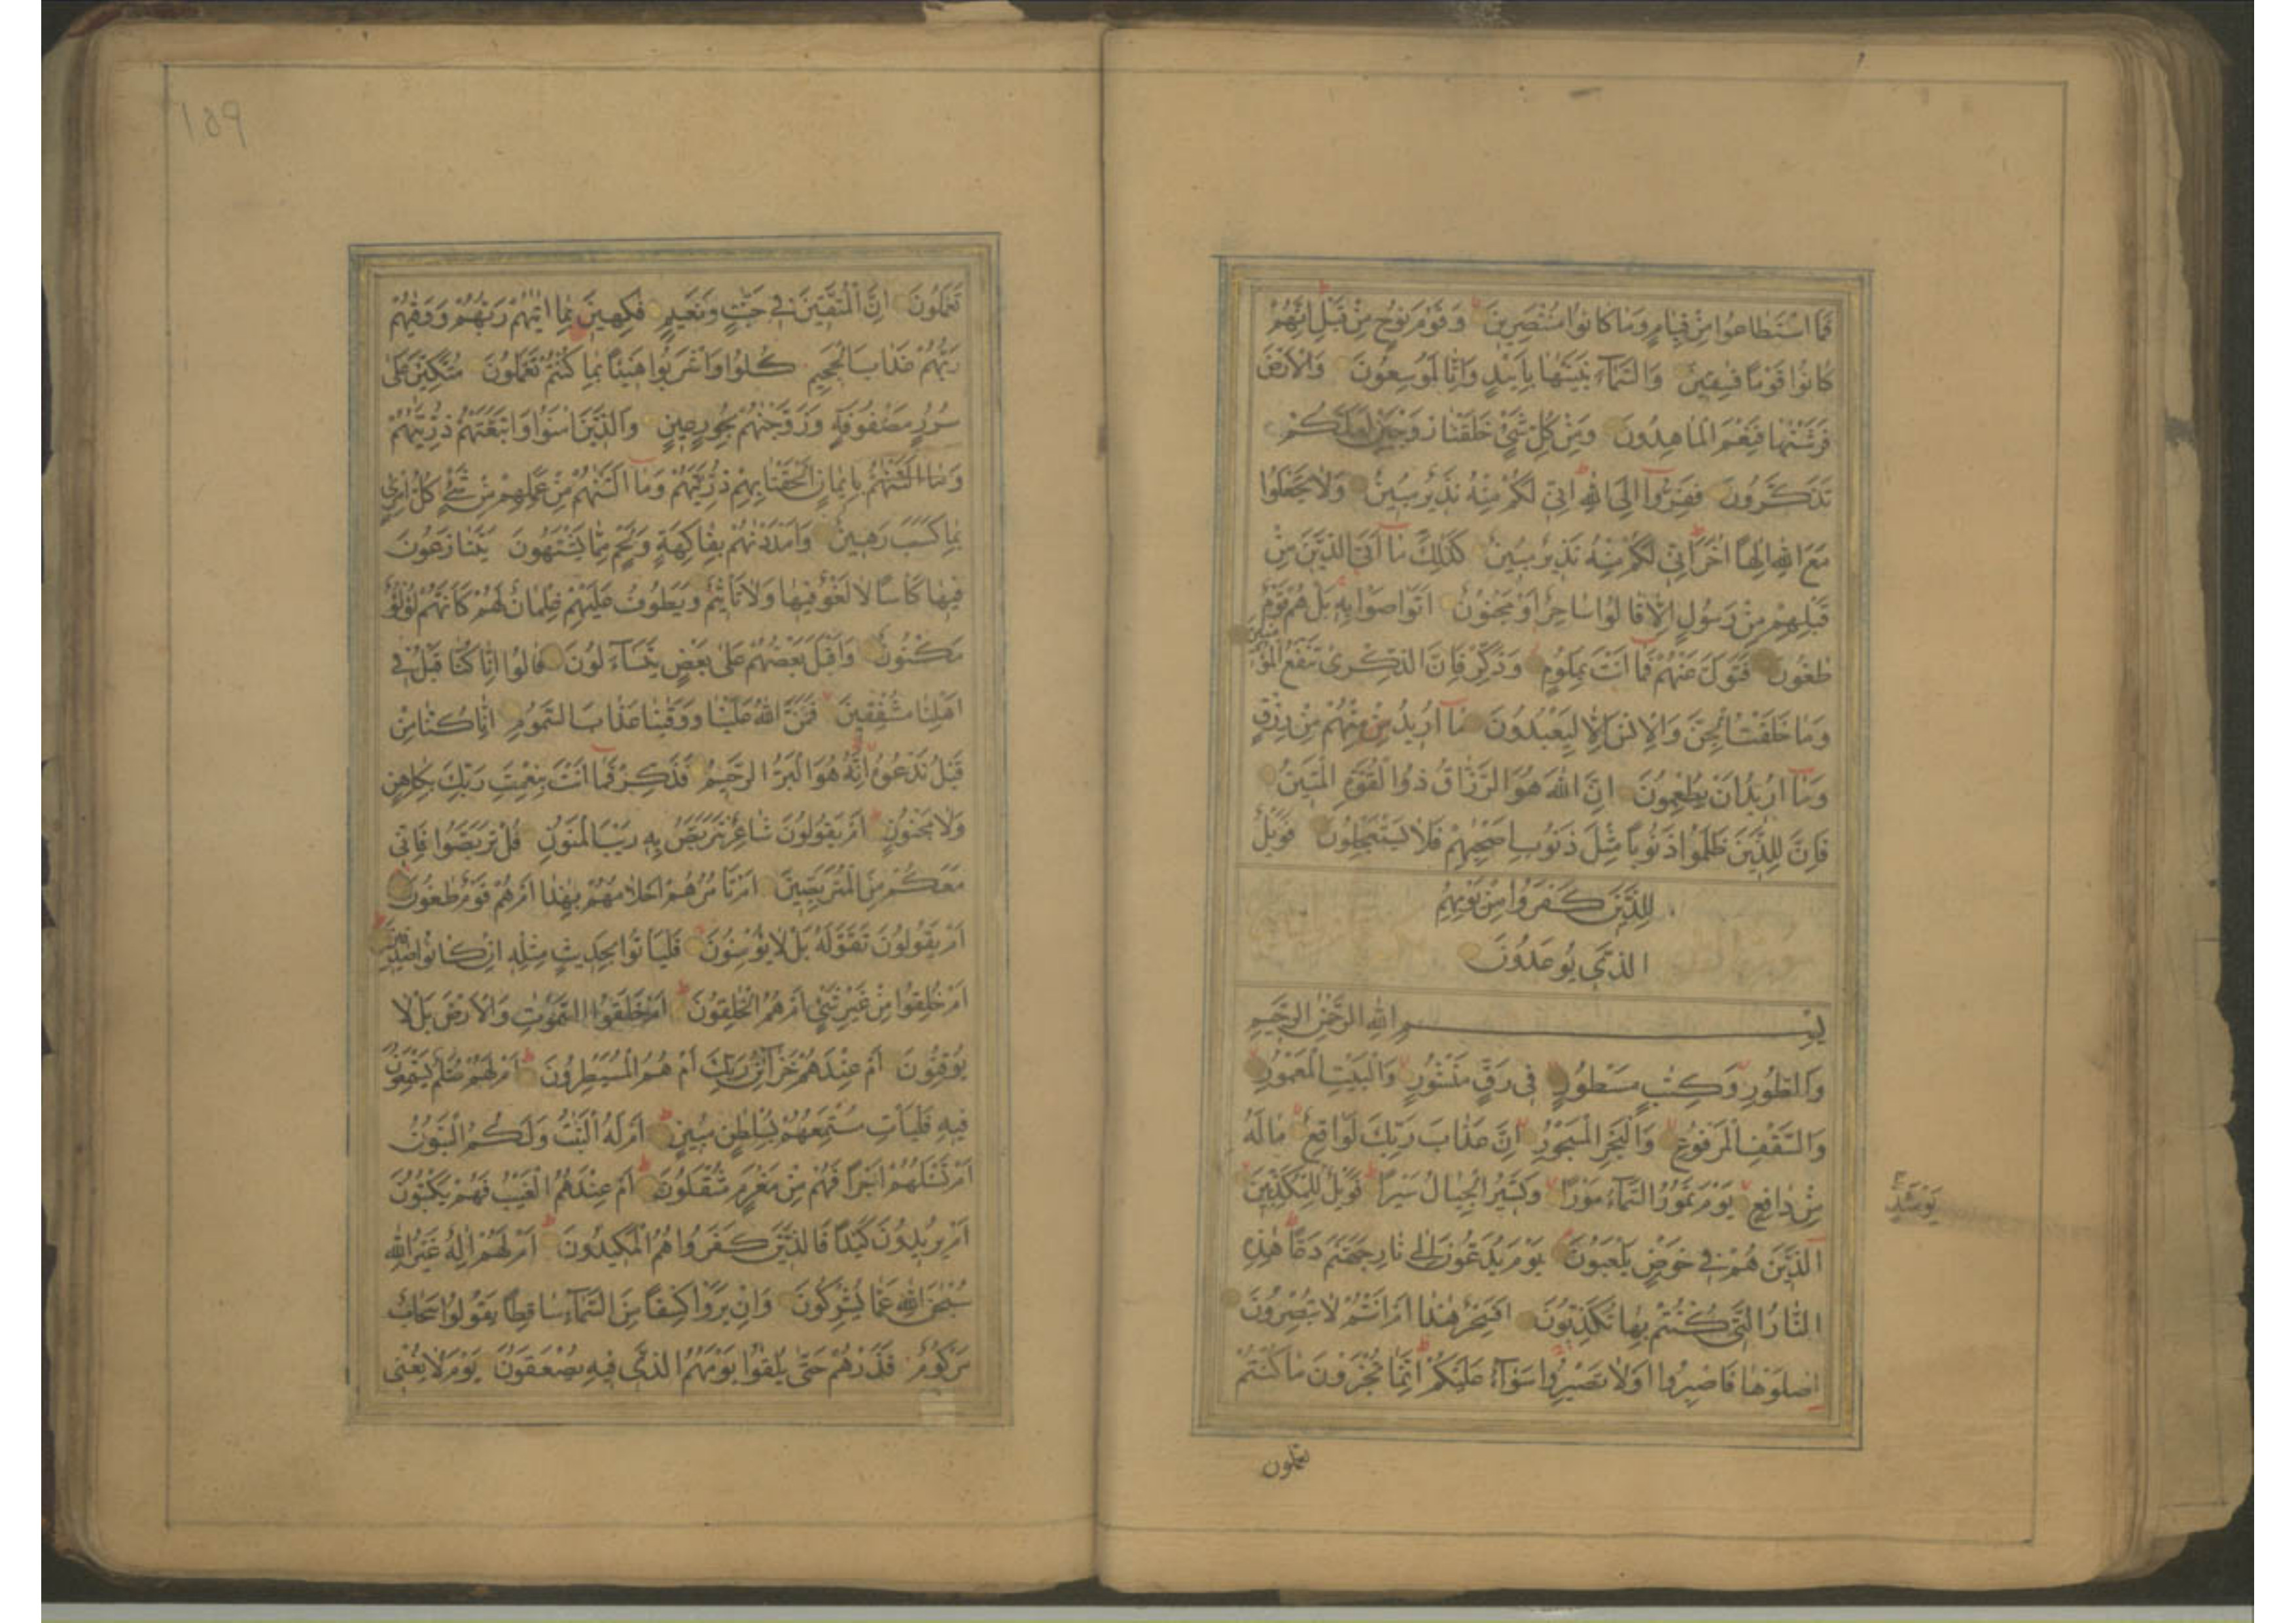 فَمَا اسْتَطَاعُوا مِنْ قِيَامٍ وَمَا كَانُوا مُنْتَصِرِينَ وَقَوْمَ نُوحٍ مِنْ قَبْلُ اِنَّهُمْ
كَانُوا قَوْمًا فٰسِقِينَ وَالسَّمَآءَ بَنَيْنٰهَا بِاَيْيدٍ وَاِنَّا لَمُوسِعُونَ وَالْاَرْضَ
فَرَشْنٰهَا فَنِعْمَ الْمَاهِدُونَ وَمِنْ كُلِّ شَيْءٍ خَلَقْنَا زَوْجَيْنِ لَعَلَّكُمْ
تَذَكَّرُونَ فَفِرُّوآ اِلَى اللهِ اِنِّي لَكُمْ مِنْهُ نَذِيرٌ مُبِينٌ وَلَا تَجْعَلُوا
مَعَ اللهِ اِلٰهًا اٰخَرَ اِنِّي لَكُمْ مِنْهُ نَذِيرٌ مُبِينٌ كَذٰلِكَ مَآ اَتَى الَّذِينَ مِنْ
قَبْلِهِمْ مِنْ رَسُولٍ اِلَّا قَالُوا سَاحِرٌ اَوْ مَجْنُونٌ اَتَوَاصَوْا بِهِ بَلْ هُمْ قَوْمٌ
طٰغُونَ فَتَوَلَّ عَنْهُمْ فَمَا اَنْتَ بِمَلُومٍ وَذَكِّرْ فَاِنَّ الذِّكْرٰى تَنْفَعُ الْمُؤْمِنِينَ
وَمَا خَلَقْتُ الْجِنَّ وَالْاِنْسَ اِلَّا لِيَعْبُدُونَ مَآ اُرِيدُ مِنْهُمْ مِنْ رِزْقٍ
وَمَآ اُرِيدُ اَنْ يُطْعِمُونَ اِنَّ اللهَ هُوَ الرَّزَّاقُ ذُو الْقُوَّةِ الْمَتِينُ
فَاِنَّ لِلَّذِينَ ظَلَمُوا ذَنُوبًا مِثْلَ ذَنُوبِ اَصْحٰبِهِمْ فَلَا يَسْتَعْجِلُونَ فَوَيْلٌ
لِلَّذِينَ كَفَرُوا مِنْ يَوْمِهِمُ
الَّذِي يُوعَدُونَ
بِسْمِ اللهِ الرَّحْمٰنِ الرَّحِيمِ
وَالطُّورِ وَكِتٰبٍ مَسْطُورٍ فِي رَقٍّ مَنْشُورٍ وَالْبَيْتِ الْمَعْمُورِ
وَالسَّقْفِ الْمَرْفُوعِ وَالْبَحْرِ الْمَسْجُورِ اِنَّ عَذَابَ رَبِّكَ لَوَاقِعٌ مَا لَهُ
مِنْ دَافِعٍ يَوْمَ تَمُورُ السَّمَآءُ مَوْرًا وَتَسِيرُ الْجِبَالُ سَيْرًا فَوَيْلٌ لِلْمُكَذِّبِينَ
يَوْمَئِذٍ
الَّذِينَ هُمْ فِي خَوْضٍ يَلْعَبُونَ يَوْمَ يُدَعُّونَ اِلٰى نَارِ جَهَنَّمَ دَعًّا هٰذِهِ
النَّارُ الَّتِي كُنْتُمْ بِهَا تُكَذِّبُونَ اَفَسِحْرٌ هٰذَا اَمْ اَنْتُمْ لَا تُبْصِرُونَ
اِصْلَوْهَا فَاصْبِرُوا اَوْ لَا تَصْبِرُوا سَوَآءٌ عَلَيْكُمْ اِنَّمَا تُجْزَوْنَ مَا كُنْتُمْ
تعملون
۱۵۹
تَعْمَلُونَ اِنَّ الْمُتَّقِينَ فِي جَنّٰتٍ وَنَعِيمٍ فٰكِهِينَ بِمَا اٰتٰيهُمْ رَبُّهُمْ وَوَقٰيهُمْ
رَبُّهُمْ عَذَابَ الْجَحِيمِ كُلُوا وَاشْرَبُوا هَنِيئًا بِمَا كُنْتُمْ تَعْمَلُونَ مُتَّكِئِينَ عَلٰى
سُرُرٍ مَصْفُوفَةٍ وَزَوَّجْنٰهُمْ بِحُورٍ عِينٍ وَالَّذِينَ اٰمَنُوا وَاتَّبَعَتْهُمْ ذُرِّيَّتُهُمْ
بِاِيمَانٍ اَلْحَقْنَا بِهِمْ ذُرِّيَّتَهُمْ وَمَآ اَلَتْنٰهُمْ مِنْ عَمَلِهِمْ مِنْ شَيْءٍ كُلُّ امْرِئٍ
بِمَا كَسَبَ رَهِينٌ وَاَمْدَدْنٰهُمْ بِفَاكِهَةٍ وَلَحْمٍ مِمَّا يَشْتَهُونَ يَتَنَازَعُونَ
فِيهَا كَاْسًا لَا لَغْوٌ فِيهَا وَلَا تَاْثِيمٌ وَيَطُوفُ عَلَيْهِمْ غِلْمَانٌ لَهُمْ كَاَنَّهُمْ لُؤْلُؤٌ
مَكْنُونٌ وَاَقْبَلَ بَعْضُهُمْ عَلٰى بَعْضٍ يَتَسَآءَلُونَ قَالُوا اِنَّا كُنَّا قَبْلُ فِي
اَهْلِنَا مُشْفِقِينَ فَمَنَّ اللهُ عَلَيْنَا وَوَقٰينَا عَذَابَ السَّمُومِ اِنَّا كُنَّا مِنْ
قَبْلُ نَدْعُوهُ اِنَّهُ هُوَ الْبَرُّ الرَّحِيمُ فَذَكِّرْ فَمَآ اَنْتَ بِنِعْمَتِ رَبِّكَ بِكَاهِنٍ
وَلَا مَجْنُونٍ اَمْ يَقُولُونَ شَاعِرٌ نَتَرَبَّصُ بِهِ رَيْبَ الْمَنُونِ قُلْ تَرَبَّصُوا فَاِنِّي
مَعَكُمْ مِنَ الْمُتَرَبِّصِينَ اَمْ تَاْمُرُهُمْ اَحْلَامُهُمْ بِهٰذَا اَمْ هُمْ قَوْمٌ طٰغُونَ
اَمْ يَقُولُونَ تَقَوَّلَهُ بَلْ لَا يُؤْمِنُونَ فَلْيَاْتُوا بِحَدِيثٍ مِثْلِهِ اِنْ كَانُوا صٰدِقِينَ
اَمْ خُلِقُوا مِنْ غَيْرِ شَيْءٍ اَمْ هُمُ الْخٰلِقُونَ اَمْ خَلَقُوا السَّمٰوٰتِ وَالْاَرْضَ بَلْ لَا
يُوقِنُونَ اَمْ عِنْدَهُمْ خَزَآئِنُ رَبِّكَ اَمْ هُمُ الْمُسَيْطِرُونَ اَمْ لَهُمْ سُلَّمٌ يَسْتَمِعُونَ
فِيهِ فَلْيَاْتِ مُسْتَمِعُهُمْ بِسُلْطٰنٍ مُبِينٍ اَمْ لَهُ الْبَنٰتُ وَلَكُمُ الْبَنُونَ
اَمْ تَسْئَلُهُمْ اَجْرًا فَهُمْ مِنْ مَغْرَمٍ مُثْقَلُونَ اَمْ عِنْدَهُمُ الْغَيْبُ فَهُمْ يَكْتُبُونَ
اَمْ يُرِيدُونَ كَيْدًا فَالَّذِينَ كَفَرُوا هُمُ الْمَكِيدُونَ اَمْ لَهُمْ اِلٰهٌ غَيْرُ اللهِ
سُبْحٰنَ اللهِ عَمَّا يُشْرِكُونَ وَاِنْ يَرَوْا كِسْفًا مِنَ السَّمَآءِ سَاقِطًا يَقُولُوا سَحَابٌ
مَرْكُومٌ فَذَرْهُمْ حَتّٰى يُلٰقُوا يَوْمَهُمُ الَّذِي فِيهِ يُصْعَقُونَ يَوْمَ لَا يُغْنِي